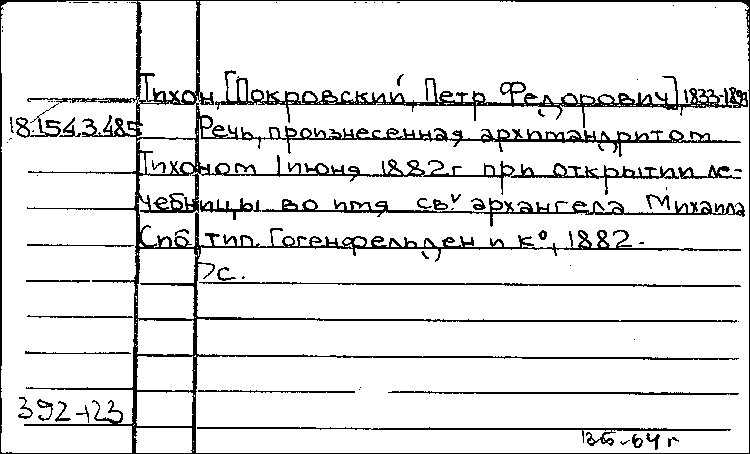 Тихон, [Покровский, Петр Федорович], 1833-1899
18.154.3.485
Речь, произнесенная архимандритом
Тихоном 1 июня 1882 г при открытии ле-
чебницы во имя св. архангела Михаила
Спб, тип. Гогенфельден и К°, 1882.
7с.
392-123